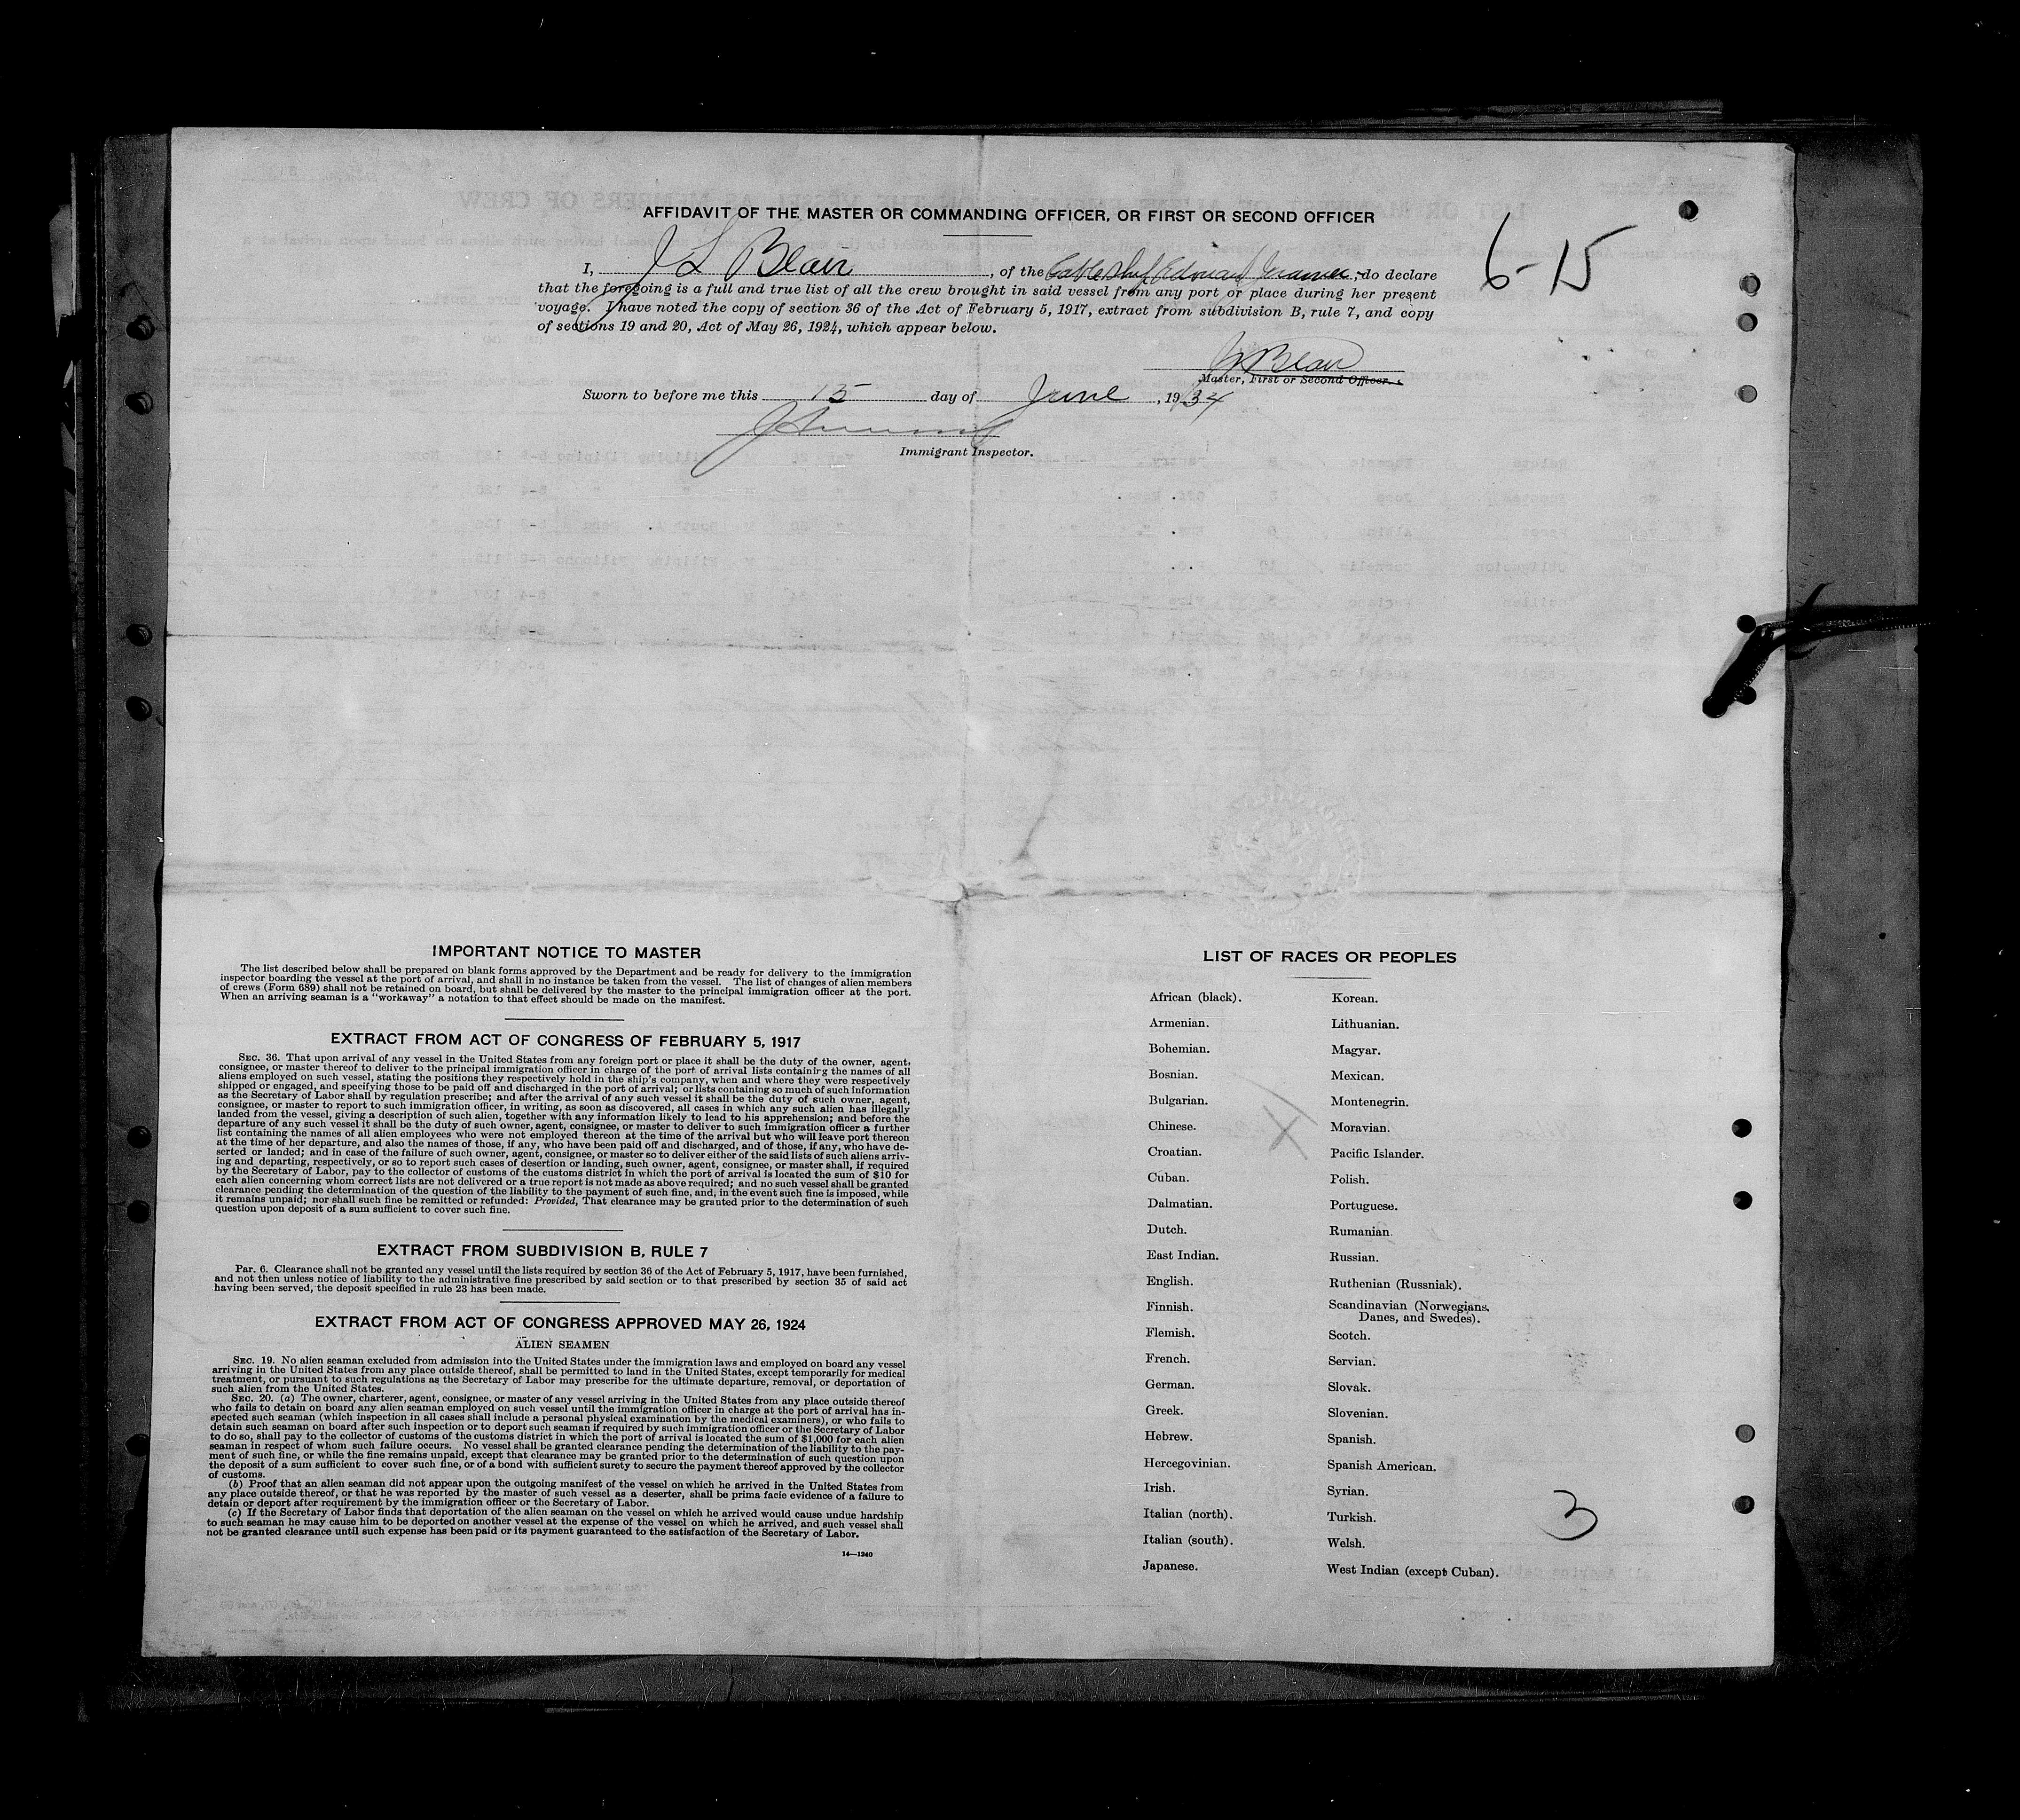 AFFIDAVIT OF THE MASTER OR COMMANDING OFFICER, OR FIRST OR SECOND OFFICER
6-15
I, J L Blair, of the Cable Ship Edouard Jeramec, do declare
that the foregoing is a full and true list of all the crew brought in said vessel from any port or place during her present
voyage. I have noted the copy of section 36 of the Act of February 5, 1917, extract from subdivision B, rule 7, and copy
of sections 19 and 20, Act of May 26, 1924, which appear below.
Blair
Master, First or Second Officer.
Sworn to before me this 15 day of June, 1934
Immigrant Inspector.
IMPORTANT NOTICE TO MASTER
The list described below shall be prepared on blank forms approved by the Department and be ready for delivery to the immigration
inspector boarding the vessel at the port of arrival, and shall in no instance be taken from the vessel. The list of changes of alien members
of crews (Form 689) shall not be retained on board, but shall be delivered by the master to the principal immigration officer at the port.
When an arriving seaman is a "workaway" a notation to that effect should be made on the manifest.
EXTRACT FROM ACT OF CONGRESS OF FEBRUARY 5, 1917
SEC. 36. That upon arrival of any vessel in the United States from any foreign port or place it shall be the duty of the owner, agent,
consignee, or master thereof to deliver to the principal immigration officer in charge of the port of arrival lists containing the names of all
aliens employed on such vessel, stating the positions they respectively hold in the ship's company, when and where they were respectively
shipped or engaged, and specifying those to be paid off and discharged in the port of arrival; or lists containing so much of such information
as the Secretary of Labor shall by regulation prescribe; and after the arrival of any such vessel it shall be the duty of such owner, agent,
consignee, or master to report to such immigration officer, in writing, as soon as discovered, all cases in which any such alien has illegally
landed from the vessel, giving a description of such alien, together with any information likely to lead to his apprehension; and before the
departure of any such vessel it shall be the duty of such owner, agent, consignee, or master to deliver to such immigration officer a further
list containing the names of all alien employees who were not employed thereon at the time of the arrival but who will leave port thereon
at the time of her departure, and also the names of those, if any, who have been paid off and discharged, and of those, if any, who have de-
serted or landed; and in case of the failure of such owner, agent, consignee, or master so to deliver either of the said lists of such aliens arriv-
ing and departing, respectively, or so to report such cases of desertion or landing, such owner, agent, consignee, or master shall, if required
by the Secretary of Labor, pay to the collector of customs of the customs district in which the port of arrival is located the sum of $10 for
each alien concerning whom correct lists are not delivered or a true report is not made as above required; and no such vessel shall be granted
clearance pending the determination of the question of the liability to the payment of such fine, and, in the event such fine is imposed, while
it remains unpaid; nor shall such fine be remitted or refunded: Provided, That clearance may be granted prior to the determination of such
question upon deposit of a sum sufficient to cover such fine.
EXTRACT FROM SUBDIVISION B, RULE 7
Par. 6. Clearance shall not be granted any vessel until the lists required by section 36 of the Act of February 5, 1917, have been furnished,
and not then unless notice of liability to the administrative fine prescribed by said section or to that prescribed by section 35 of said act
having been served, the deposit specified in rule 23 has been made.
EXTRACT FROM ACT OF CONGRESS APPROVED MAY 26, 1924
ALIEN SEAMEN
SEC. 19. No alien seaman excluded from admission into the United States under the immigration laws and employed on board any vessel
arriving in the United States from any place outside thereof, shall be permitted to land in the United States, except temporarily for medical
treatment, or pursuant to such regulations as the Secretary of Labor may prescribe for the ultimate departure, removal, or deportation of
such alien from the United States.
SEC. 20. (a) The owner, charterer, agent, consignee, or master of any vessel arriving in the United States from any place outside thereof
who fails to detain on board any alien seaman employed on such vessel until the immigration officer in charge at the port of arrival has in-
spected such seaman (which inspection in all cases shall include a personal physical examination by the medical examiners), or who fails to
detain such seaman on board after such inspection or to deport such seaman if required by such immigration officer or the Secretary of Labor
to do so, shall pay to the collector of customs of the customs district in which the port of arrival is located the sum of $1,000 for each alien
seaman in respect of whom such failure occurs. No vessel shall be granted clearance pending the determination of the liability to the pay-
ment of such fine, or while the fine remains unpaid, except that clearance may be granted prior to the determination of such question upon
the deposit of a sum sufficient to cover such fine, or of a bond with sufficient surety to secure the payment thereof approved by the collector
of customs.
(b) Proof that an alien seaman did not appear upon the outgoing manifest of the vessel on which he arrived in the United States from
any place outside thereof, or that he was reported by the master of such vessel as a deserter, shall be prima facie evidence of a failure to
detain or deport after requirement by the immigration officer or the Secretary of Labor.
(c) If the Secretary of Labor finds that deportation of the alien seaman on the vessel on which he arrived would cause undue hardship
to such seaman he may cause him to be deported on another vessel at the expense of the vessel on which he arrived, and such vessel shall
not be granted clearance until such expense has been paid or its payment guaranteed to the satisfaction of the Secretary of Labor.
14—1240
LIST OF RACES OR PEOPLES
African (black).
Armenian.
Bohemian.
Bosnian.
Bulgarian.
Chinese.
Croatian.
Cuban.
Dalmatian.
Dutch.
East Indian.
English.
Finnish.
Flemish.
French.
German.
Greek.
Hebrew.
Hercegovinian.
Irish.
Italian (north).
Italian (south).
Japanese.
Korean.
Lithuanian.
Magyar.
Mexican.
Montenegrin.
Moravian.
Pacific Islander.
Polish.
Portuguese.
Rumanian.
Russian.
Ruthenian (Russniak).
Scandinavian (Norwegians,
Danes, and Swedes).
Scotch.
Servian.
Slovak.
Slovenian.
Spanish.
Spanish American.
Syrian.
Turkish.
Welsh.
West Indian (except Cuban).
3